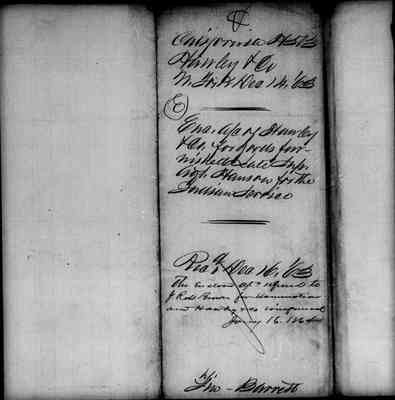 California H 313
Hawley & Co
N. York Dec 14, '63
E
Enc. a/c of Hawley
& Co. for goods fur-
nished late Sup.
Hanson for the
Indian Service
Recd Dec 16, '63
The enclosed a/c referred to
J Ross Browne for
and Hawley & Co informed
Jany 16. 1864
Barrett